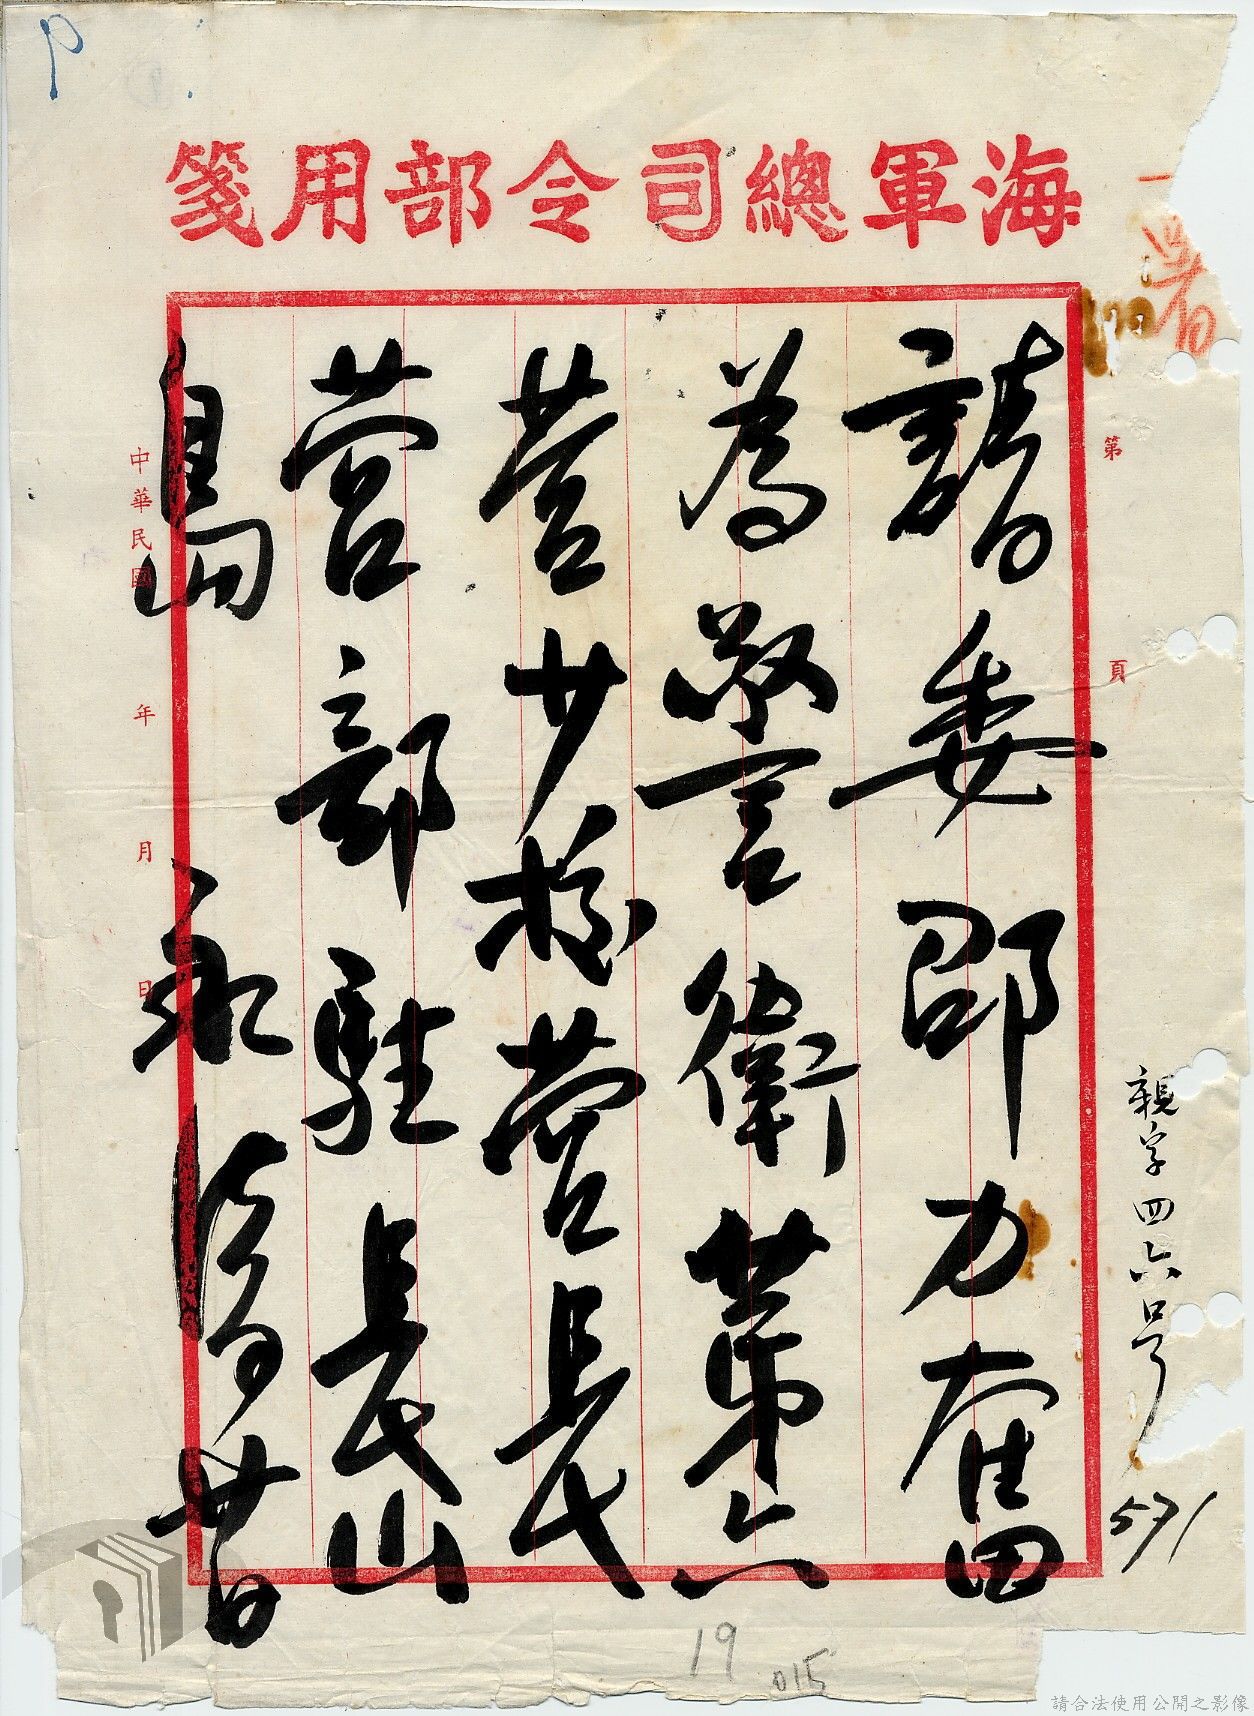 海軍總司令部用箋
第 頁
請委邵力奮
為警衛第六
营少校营長
营部駐長山
島
永清
廿日
中華民國 年 月 日
親字四六号
571
19
015
請合法使用公開之影像